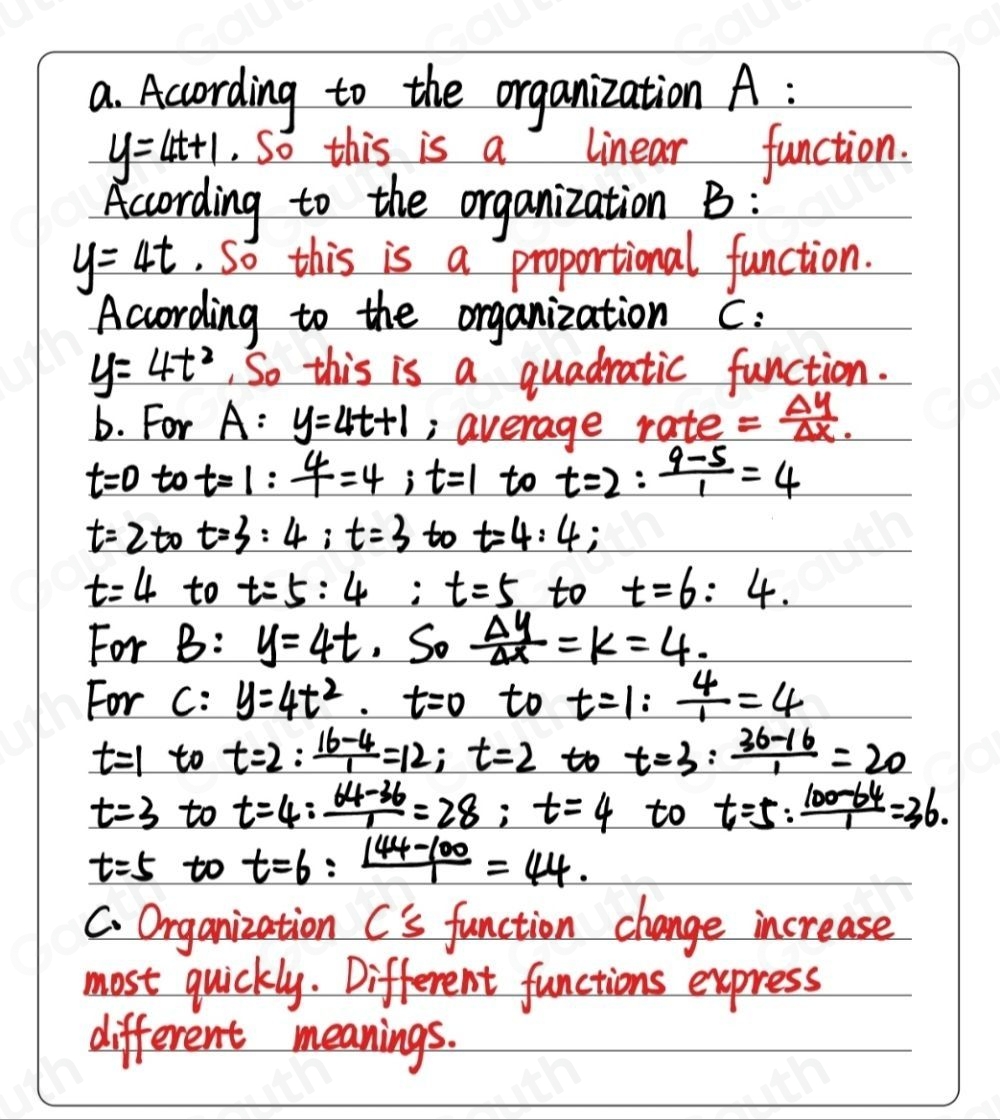 a. According to the organization A :
y=4t+1. So this is a linear function.
According to the organization B :
y= 4t. So this is a proportional function.
According to the organization C:
y= 4t². So this is a quadratic function.
b. For A: y=4t+1; average rate = Δy/Δx.
t=0 to t=1: 4/1=4; t=1 to t=2: 9-5/1=4
t=2 to t=3: 4; t=3 to t=4: 4;
t=4 to t=5: 4 ; t=5 to t=6: 4.
For B: y=4t. So Δy/Δx=k=4.
For C: y=4t². t=0 to t=1: 4/1=4
t=1 to t=2: 16-4/1=12; t=2 to t=3: 36-16/1=20
t=3 to t=4: 64-36/1=28; t=4 to t=5: 100-64/1=36.
t=5 to t=6: 144-100/1=44.
C. Organization C's function change increase
most quickly. Different functions express
different meanings.